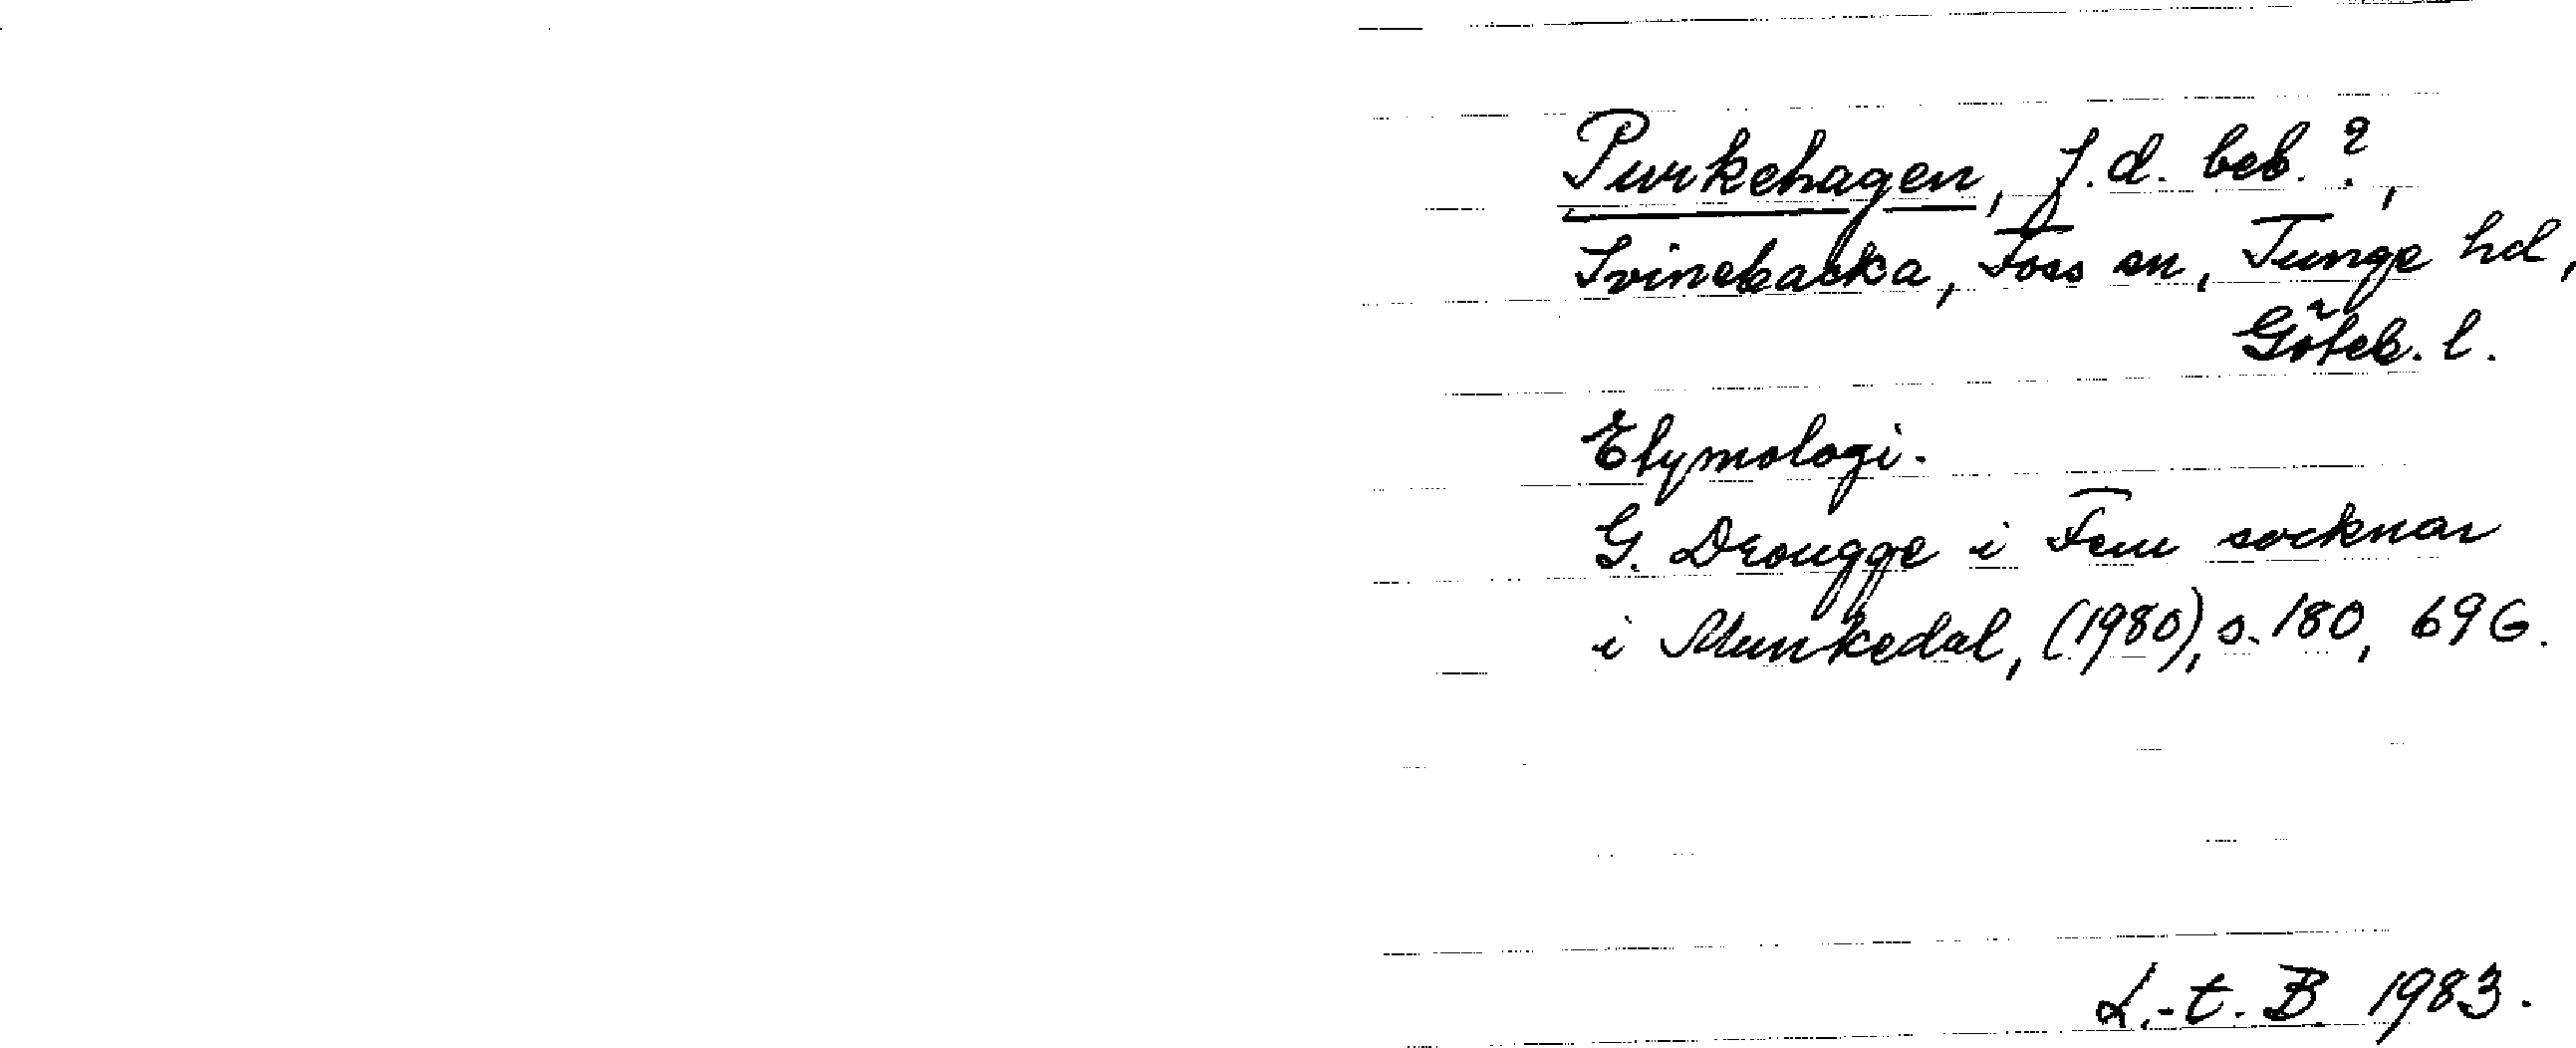 Purkehagen, f.d. beb.?,
Svinebacka, Foss sn, Tunge hd,
Göteb. l.
Etymologi.
G. Drougge i Fem socknar
i Munkedal, (1980), s. 180, 696.
L.-t. B 1983.